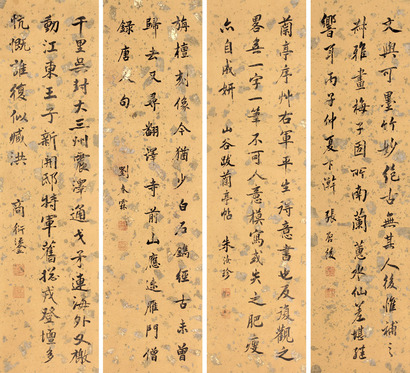 文與可墨竹妙絕古今其人後惟補之
畫梅子固
蘭蕙水仙差堪繼
響耳丙子仲夏下澣 張啟後
蘭亭序草右軍平生得意書也反復觀之
略無一字一筆不可人意模寫或失之肥瘦
亦自成妍 山谷跋蘭亭帖 朱汝珍
旃檀刻像今猶少白石鐫經古未曾
歸去又尋翻譯寺前山應遠雁門僧
錄唐人句 劉春霖
千里吳封大三州震澤通戈矛連海外文檄
動江東王子新開邸將軍舊總戎登壇多
忼慨誰復似臧洪 商衍鎏